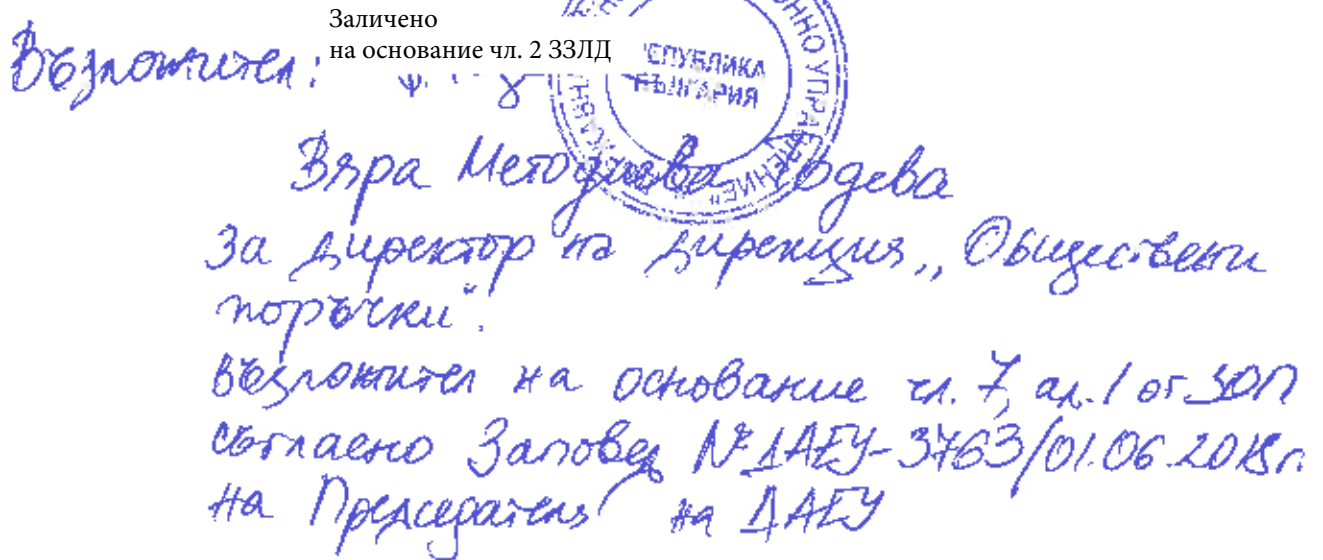 Заличено
на основание чл. 2 ЗЗЛД
Възложител:
РЕПУБЛИКА
БЪЛГАРИЯ
УПРАВЛЕНИЕ"
Вяра Методиева
За директор на дирекция „Обществени
поръчки".
Възложител на основание чл. 7, ал. 1 от ЗОП
съгласно Заповед № ДАЕУ-3763/01.06.2018г.
на Председателя на ДАЕУ